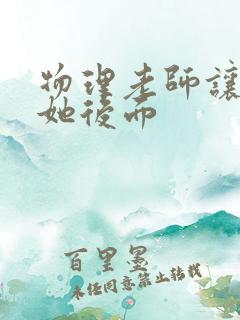 物理老師讓
她後而
百里墨
未经同意禁止转载